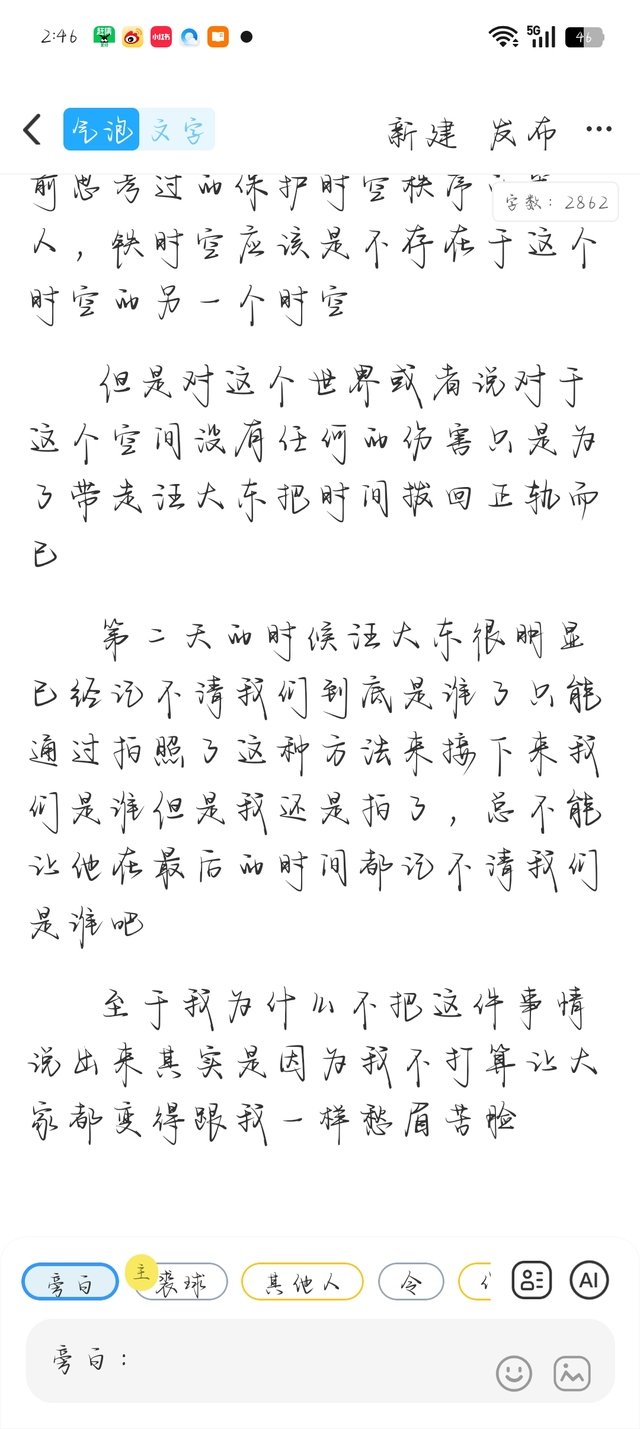 2:46
5G
46
气泡 文字
新建 发布
前思考过的保护时空秩序
字数：2862
人，铁时空应该是不存在于这个
时空的另一个时空
但是对这个世界或者说对于
这个空间没有任何的伤害只是为
了带走汪大东把时间拨回正轨而
已
第二天的时候汪大东很明显
已经记不清我们到底是谁了只能
通过拍照了这种方法来接下来我
们是谁但是我还是拍了，总不能
让他在最后的时间都记不清我们
是谁吧
至于我为什么不把这件事情
说出来其实是因为我不打算让大
家都变得跟我一样愁眉苦脸
旁白 主 裘球 其他人 令
AI
旁白：